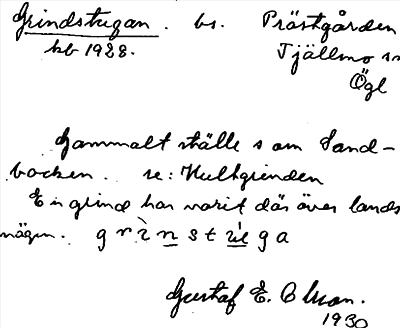 Grindstugan. bs. Prästgården
kb 1928. Tjällmo sn
Ögl
Gammalt ställe som Sand-
backen. se: Hultgrinden
En grind har varit där över lands
vägen. grìnstu̇ga
Gustaf E. Olsson.
1930